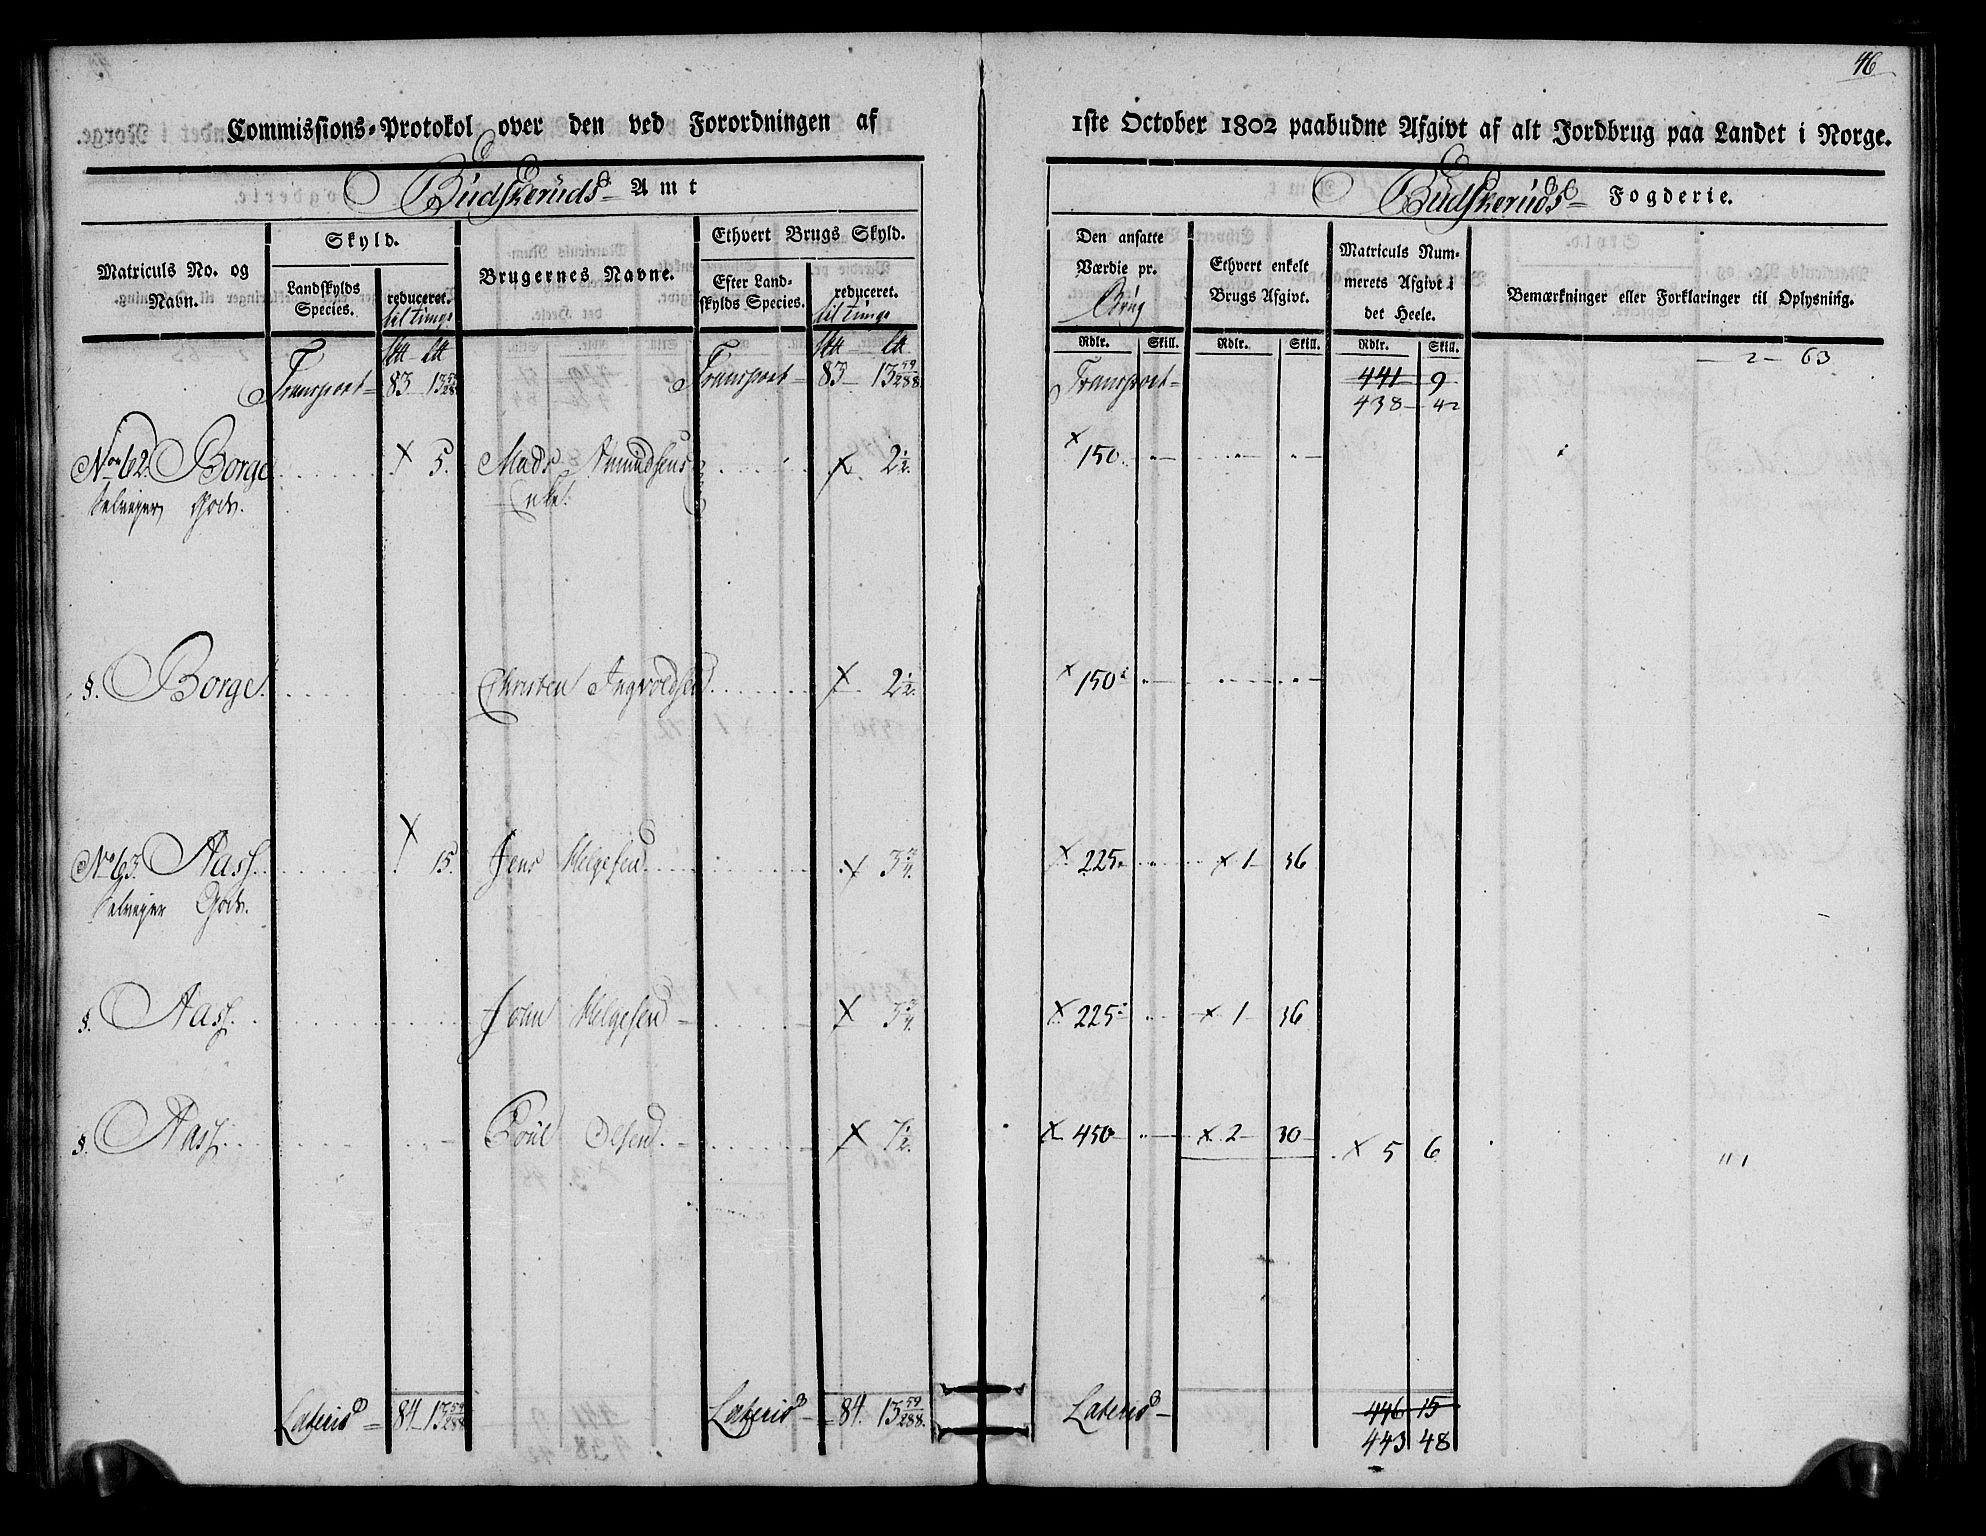 46
Commissions-Protokol over den ved Forordningen af 1ste October 1802 paabudne Afgivt af alt Jordbrug paa Landet i Norge.
Budskeruds Amt
Budskeruds Fogderie.
Matriculs No. og Navn.
Skyld.
Landskylds Species.
reduceret.
til Tunge
Brugernes Navne.
Ethvert Brugs Skyld.
Efter Landskylds Species.
reduceret.
til Tunge
Den ansatte Værdie pr.
Brug
Ethvert enkelt Brugs Afgivt.
Matriculs Nummerets Afgivt i det Heele.
Bemærkninger eller Forklaringer til Oplysning.
Rdlr. Skill. Rdlr. Skill. Rdlr. Skill.
2 - 63
Transport - 83 13 59/288 Transport - 83 - 13 59/288 Transport - 441 9
438 - 42
No 62. Borge X 5. Mads Amundsens X 2 1/2. X 150
Selveyer Gods. Enke.
§. Borge. Christen Ingvoldsen X 2 1/2. X 150
No 63. Aass. X 15. Jens Helgesen X 3 3/4. X 225 X 1 36
Selveyer Gods.
§. Aass. John Helgesen X 3 3/4. X 225 X 1 36
§. Aass. Poul Olsen X 7 1/2. X 450 X 2 30 X 5 6 " 1
Lateris = 84 13 59/288 Lateris - 84. 13 59/288. Lateris - 446 15
443 48